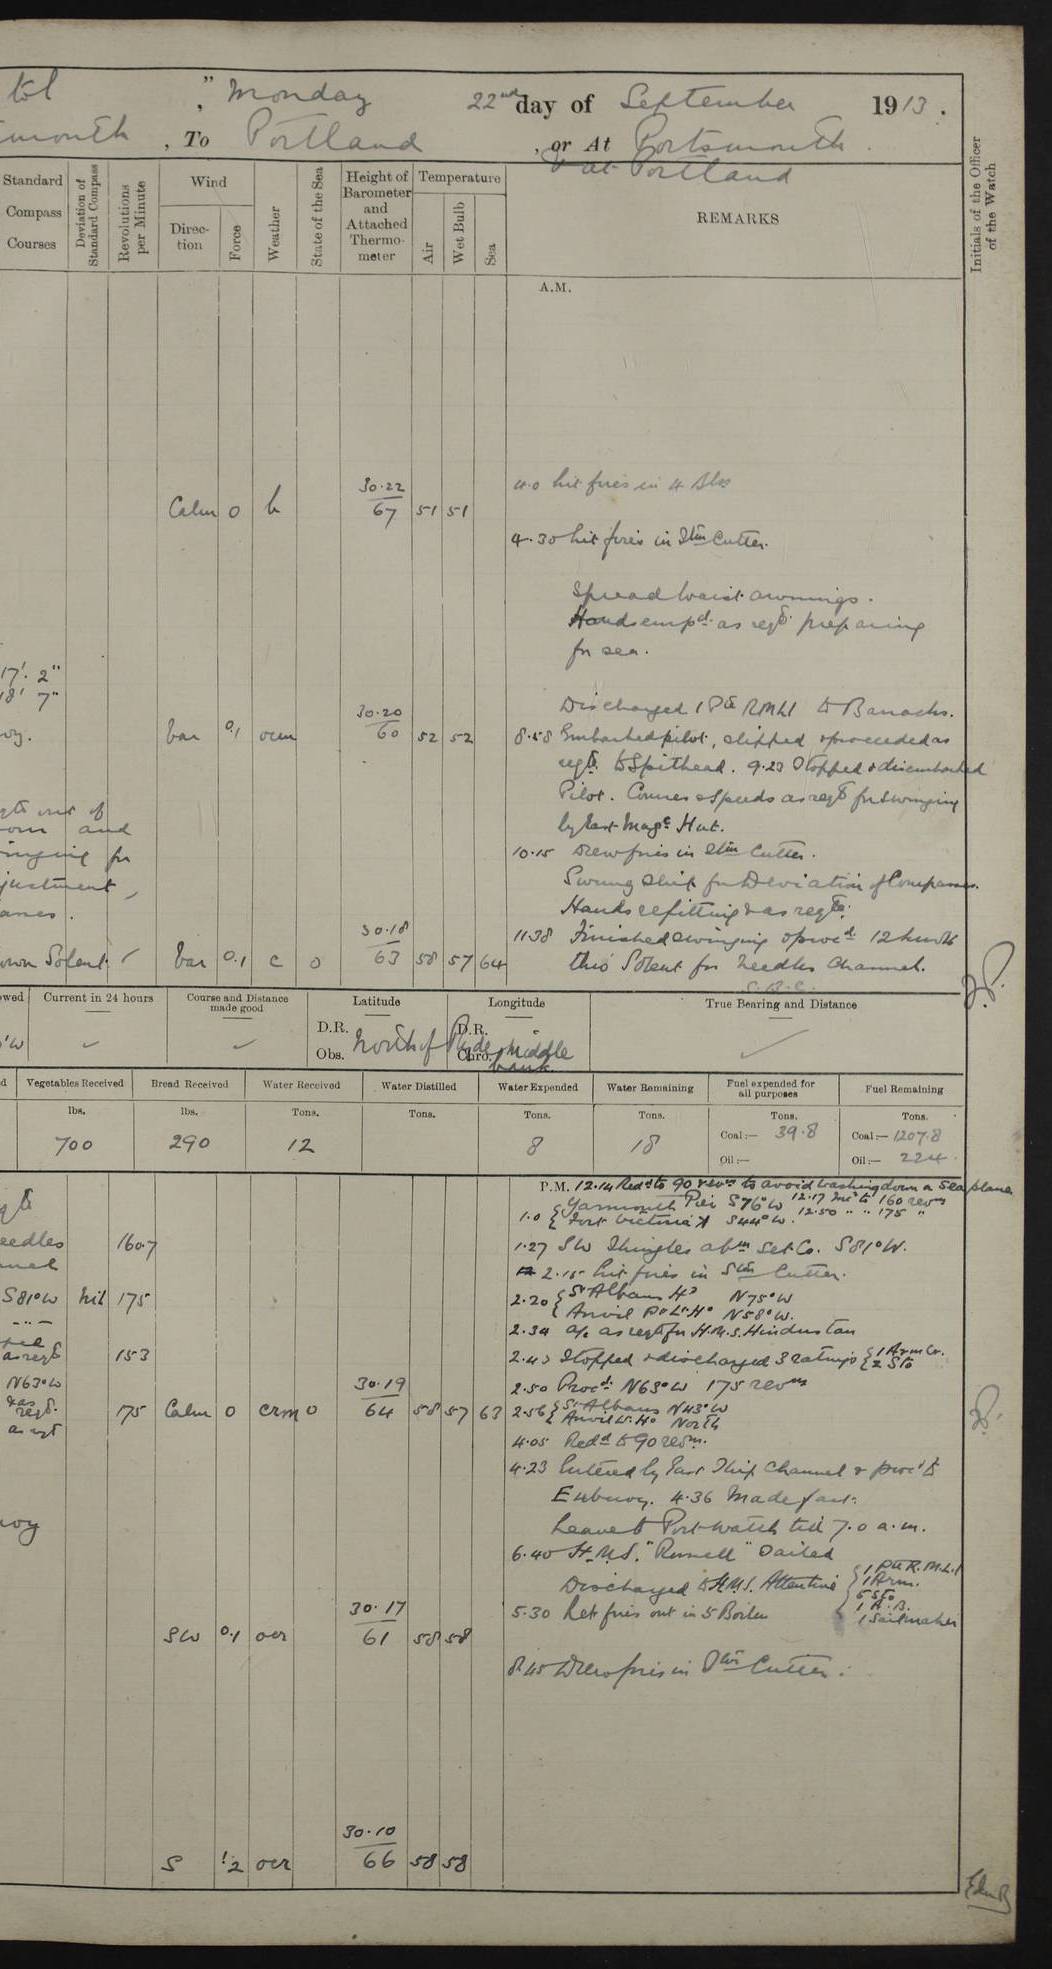 " Monday 22nd day of September 1913.
mouth, To Portland, or At Portsmouth.
& at Portland
Standard Compass Courses
Deviation of Standard Compass
Revolutions per Minute
Wind
Direction
Force
Weather
State of the Sea
Height of Barometer and Attached Thermometer
Temperature
Air
Wet Bulb
Sea
REMARKS
Initials of the Officer of the Watch
A.M.
4.0 lit fires in 4 Blrs
30.22
Calm 0 b 67 51 51
4.30 Lit fires in Stm Cutter.
Spread Waist awnings.
Hands empd. as reqd. preparing
for sea.
17' 2"
18' 7"
Discharged 1 Pte RMLI to Barracks.
30.20
oy. Var 0.1 ocm 60 52 52
8.58 Embarked pilot, slipped & proceeded as
reqd. to Spithead. 9.23 Stopped & disembarked
Pilot. Courses & Speeds as reqd for Swinging
by East Magc Hut.
10.15 Drew fires in Stm Cutter.
Swung Ship for Deviation of Compasses.
Hands refitting & as reqd.
30.18
11.38 Finished swinging & procd. 12 knots
own Solent Var 0.1 c 0 63 58 57 64
thro' Solent for Needles Channel.
Current in 24 hours
Course and Distance made good
Latitude
Longitude
True Bearing and Distance
D.R.
Obs.
D.R.
Chro.
North of Ryde Middle
bank
Vegetables Received
Bread Received
Water Received
Water Distilled
Water Expended
Water Remaining
Fuel expended for all purposes
Fuel Remaining
lbs. lbs. Tons. Tons. Tons. Tons. Tons. Tons.
700 290 12 8 18
Coal:— 39.8 Coal:— 1207.8
Oil:— Oil:— 224
P.M. 12.14 Redd to 90 revns to avoid washing down a Sea plane
1.0 { Yarmouth Pier S76°W 12.17 Incd to 160 revns
Fort Victoria S44°W. 12.50 " " 175 "
eedles 160.7
1.27 SW Shingles abm Set Co. S81°W.
2.15 Lit fires in Stm Cutter.
S81°W Nil 175
2.20 { St Albans Hd N75°W
Anvil Pt Lt Ho N58°W.
2.34 a/c as reqd for H.M.S. Hindustan
as reqd 153
2.43 Stopped & discharged 3 ratings { 1 Arm Cr. 2 Sto
N63°W
2.50 Procd. N63°W 175 revns
30.19
175 Calm 0 crm 0 64 58 57 63
2.56 { St Albans N43°W
Anvil Lt. Ho North
4.05 Redd to 90 revns.
4.23 Entered by East Ship Channel & procd to
E buoy. 4.36 Made fast.
Leave to Port Watch till 7.0 a.m.
6.40 H.M.S. "Russell" Sailed
Discharged to H.M.S. Attentive { 1 Pte R.M.L.I
1 Arm.
5 Sto
1 A.B.
1 Sailmaker
30.17
5.30 Let fires out in 5 Boilers
SW 0.1 ocr 61 58 58
8.45 Drew fires in Stm Cutter.
30.10
S 1.2 ocr 66 58 58